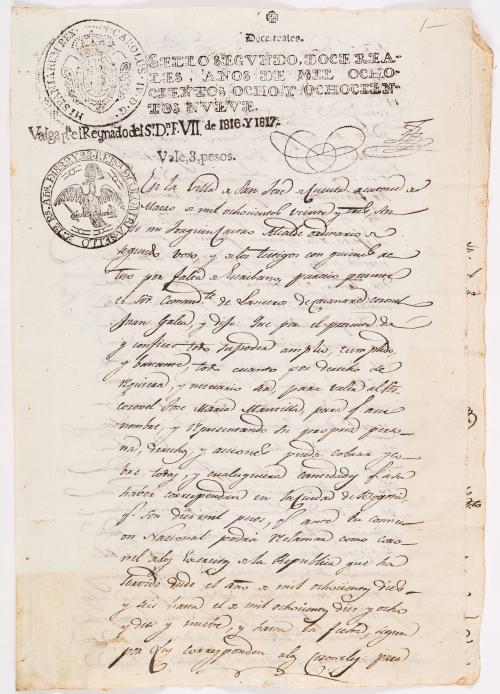 Doce reales.
SELLO SEGUNDO, DOCE REA-
LES, AÑOS DE MIL OCHO-
CIENTOS OCHO, Y OCHOCIEN-
TOS NUEVE.
HISPANIARUM REX CAROLUS IV D G
Valga pa. el Reynado del Sr. Dn. F. VII. de 1816. Y 1817.
Vale, 3, pesos.
SELLO
En la Villa de San José de Cucuta a catorce de
Marzo de mil ochocientos veinte y tres, an
te mi Joaquin Alcalde ordinario de
segundo voto, y de los testigos con quienes ac
tuo por falta de Escribano, parecio presente
el Sor. Comandte. de Lanceros de Casanare coronel
Juan Galea, y dijo: Que por el presente da
y confiere todo su poder amplio, cumplido,
y bastante todo cuanto por derecho se
requiera, y necesario sea, para valer al Sor.
coronel José Maria Mansilla, para q. a su
nombre, y representando su propria perso-
na, derecho, y acciones pueda cobrar, y co-
bre, todas, y cualesquiera cantidades q. a su
haver correspondan en la ciudad de Bogotá,
q. son diez mil pesos, q. ante la comicion
Nacional podrá reclamar como coro-
nel de los Exercitos de la Republica que ha
servido desde el año de mil ochocientos diez
y seis hasta el de mil ochocientos diez y ocho
y diez y nueve, y hasta la fecha, segun
por Ley corresponden a los Coroneles: para